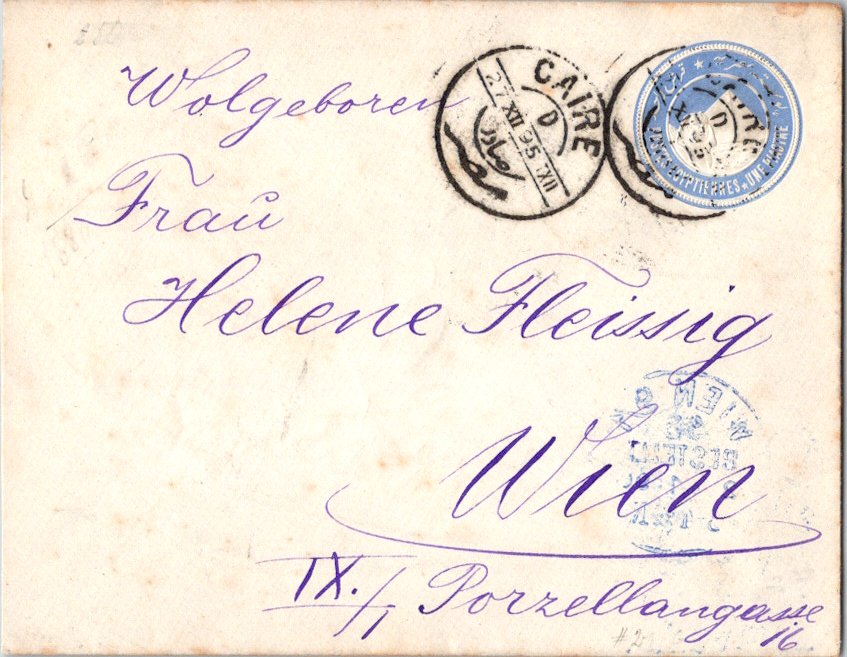 Wolgeboren
Frau
Helene Fleissig
Wien
IX./1 Porzellangasse
16
CAIRE
D
27 XII 95 XII
صادر
POSTES EGYPTIENNES ★ UNE PIASTRE
WIEN 9
BESTELLT